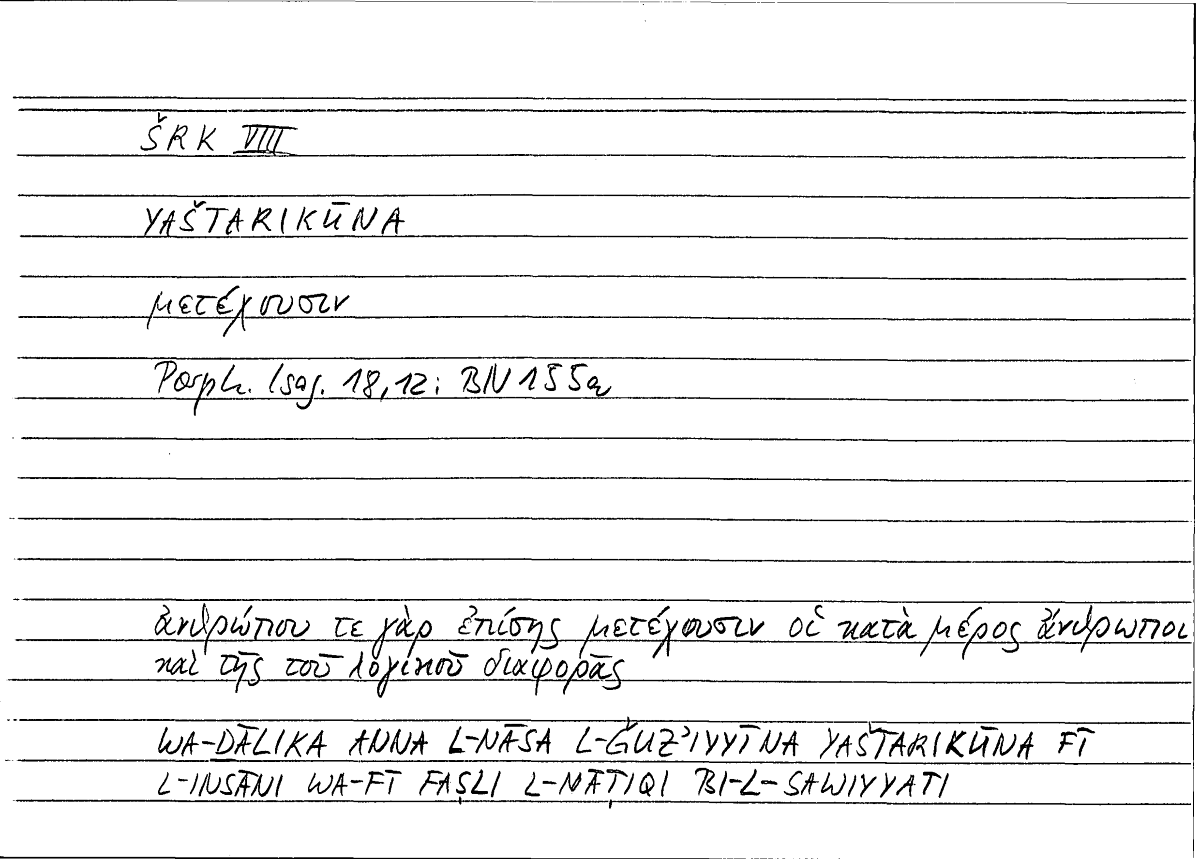 ŠRK VIII
YAŠTARIKŪNA
μετέχουσιν
Porph. Isag. 18,12; BN 155a
ἀνθρώπου τε γὰρ ἐπίσης μετέχουσιν οἱ κατὰ μέρος ἄνθρωποι
καὶ τῆς τοῦ λογικοῦ διαφορᾶς
WA-ḎĀLIKA ANNA L-NĀSA L-ǦUZʾIYYĪNA YAŠTARIKŪNA FĪ
L-INSĀNI WA-FĪ FAṢLI L-NĀṬIQI BI-L-SAWIYYATI